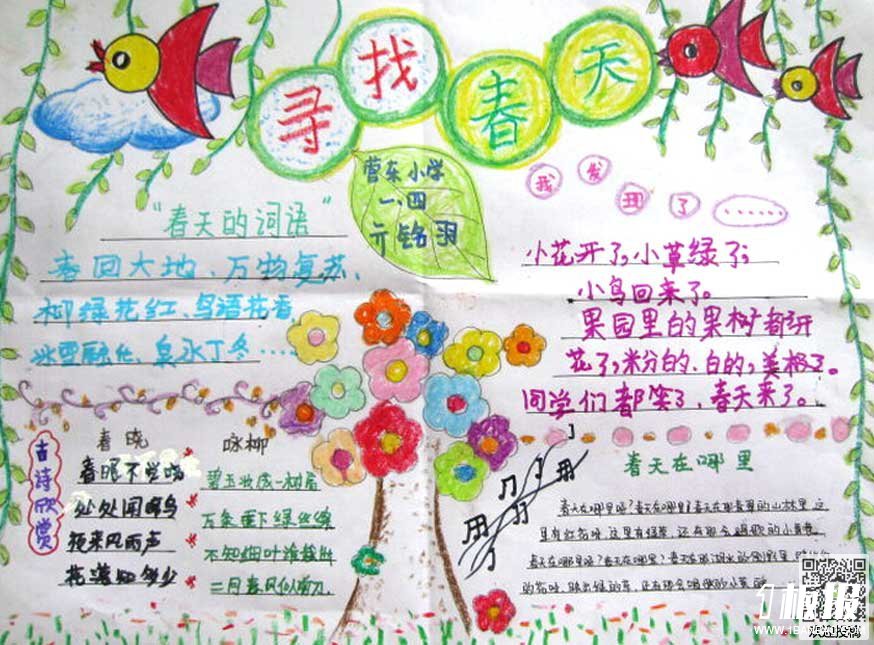 寻找春天
营东小学
一.四
亓铭羽
“春天的词语”
春回大地、万物复苏、
柳绿花红、鸟语花香
冰雪融化、泉水丁冬……
我发现了……
小花开了，小草绿了；
小鸟回来了。
果园里的果树都开
花了，粉的、白的，美极了。
同学们都笑了，春天来了。
古诗欣赏
春晓
春眠不觉晓
处处闻啼鸟
夜来风雨声
花落知多少
咏柳
碧玉妆成一树高
万条垂下绿丝绦
不知细叶谁裁出
二月春风似剪刀.
春天在哪里
春天在哪里呀？春天在哪里？春天在那青翠的山林里 这
里有红花呀，这里有绿草，还有那会唱歌的小黄鹂
春天在哪里呀？春天在哪里？春天在那湖水的倒影里
的花呀，映出绿的草，还有那会唱歌的小黄鹂
板报